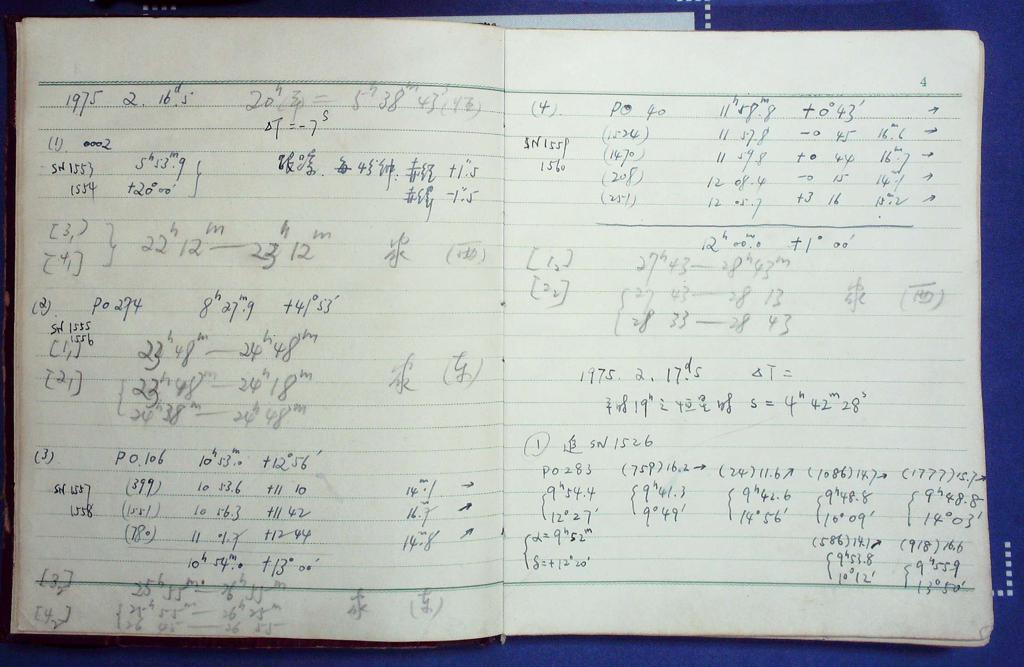 1975 2. 16ᵈ.5 20ʰ = 5ʰ38ᵐ43ˢ
ΔT = -7ˢ
(1) 0002
SN1553 5ʰ53ᵐ.9
1554 +20°00′
4分钟 赤经 +1ˢ.5
赤纬 -1″.5
[3₁]
[4₁]
22ʰ12ᵐ — 23ʰ12ᵐ (西)
(2) PO 274 8ʰ27ᵐ.9 +41°53′
SN1555
1556
[1₁] 23ʰ48ᵐ — 24ʰ48ᵐ
[2₁] 23ʰ48ᵐ — 24ʰ18ᵐ (东)
24ʰ38ᵐ — 24ʰ48ᵐ
(3) PO.106 10ʰ53ᵐ.0 +12°56′
SN1557 (399) 10 53.6 +11 10 14ᵐ.1 →
1558 (1551) 10 56.3 +11 42 16.7 ↗
(780) 11 01.7 +12 44 14ᵐ.8 ↗
10ʰ54ᵐ.0 +13°00′
[3₂] 25ʰ55ᵐ — 26ʰ55ᵐ
[4₂] 25ʰ55ᵐ — 26ʰ25ᵐ (东)
26 45 — 26 55
4
(4). PO 40 11ʰ58ᵐ.8 +0°43′ →
SN1559 (1524) 11 57.8 -0 45 16ᵐ.6 →
1560 (1470) 11 59.8 +0 44 16ᵐ.7 →
(208) 12 08.4 -0 15 14ᵐ.1 →
(251) 12 05.7 +3 16 15ᵐ.2 ↗
12ʰ00ᵐ.0 +1°00′
[1₂] 27ʰ43 — 28ʰ43ᵐ
[2₂] 27 43 — 28 13 (西)
28 33 — 28 43
1975. 2. 17ᵈ.5 ΔT =
19ʰ之恒星时 S = 4ʰ42ᵐ28ˢ
① 追 SN1526
PO283 (759)16.2→ (24)11.6↗ (1086)14.7→ (1777)15.7→
9ʰ54.4 9ʰ41.3 9ʰ42.6 9ʰ48.8 9ʰ48.8
12°27′ 9°49′ 14°56′ 10°09′ 14°03′
α=9ʰ52ᵐ (586)14.1↗ (918)16.6
δ=+12°20′ 9ʰ53.8 9ʰ55.9
10°12′ 13°50′